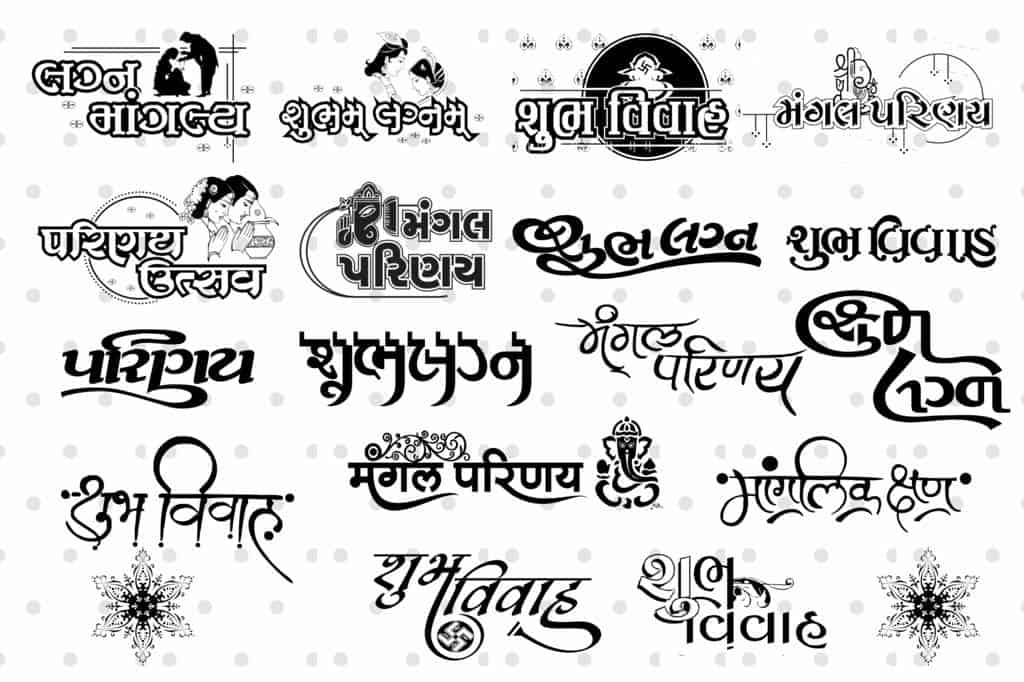 લગ્ન
માંગલ્ય
શુભમ્ લગ્નમ્
શુભ વિવાહ
શ્રી
મંગલ પરિણય
પરિણય
ઉત્સવ
મંગલ
પરિણય
શુભ લગ્ન
શુભ વિવાહ
પરિણય
શુભ લગ્ન
મંગલ
પરિણય
શુભ
લગ્ન
શુભ વિવાહ
मंगल परिणय
માંગલિક ક્ષણ
શુભ
વિવાહ
શુભ
વિવાહ